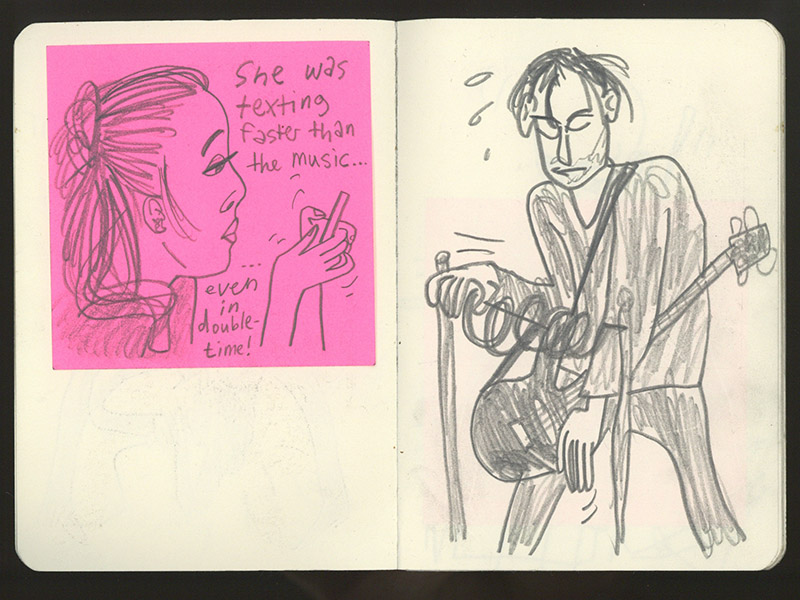 She was
texting
faster than
the music...
...
even
in
double-
time!